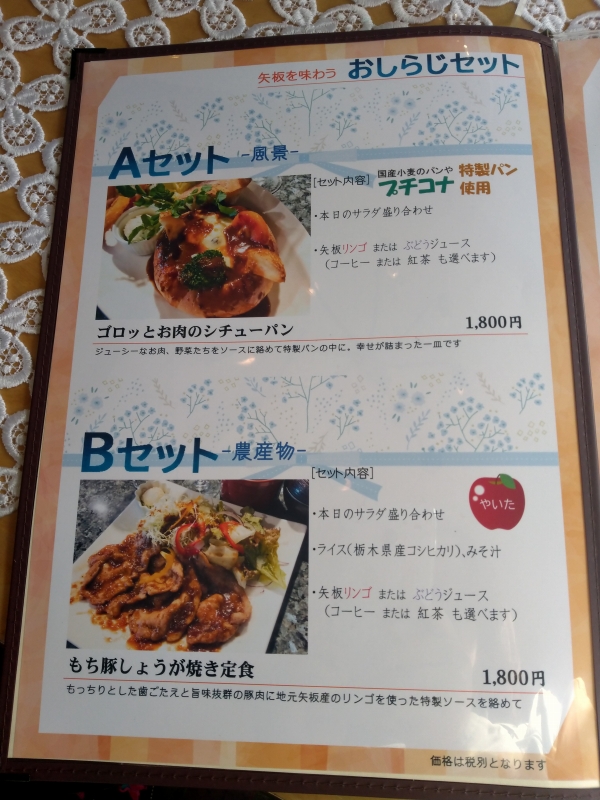 矢板を味わう おしらじセット
Aセット -風景-
[セット内容] 国産小麦のパンや 特製パン
プチコナ 使用
・本日のサラダ盛り合わせ
・矢板リンゴ または ぶどうジュース
(コーヒー または 紅茶 も選べます)
ゴロッとお肉のシチューパン 1,800円
ジューシーなお肉、野菜たちをソースに絡めて特製パンの中に。幸せが詰まった一皿です
Bセット -農産物-
[セット内容]
やいた
・本日のサラダ盛り合わせ
・ライス(栃木県産コシヒカリ)、みそ汁
・矢板リンゴ または ぶどうジュース
(コーヒー または 紅茶 も選べます)
もち豚しょうが焼き定食 1,800円
もっちりとした歯ごたえと旨味抜群の豚肉に地元矢板産のリンゴを使った特製ソースを絡めて
価格は税別となります